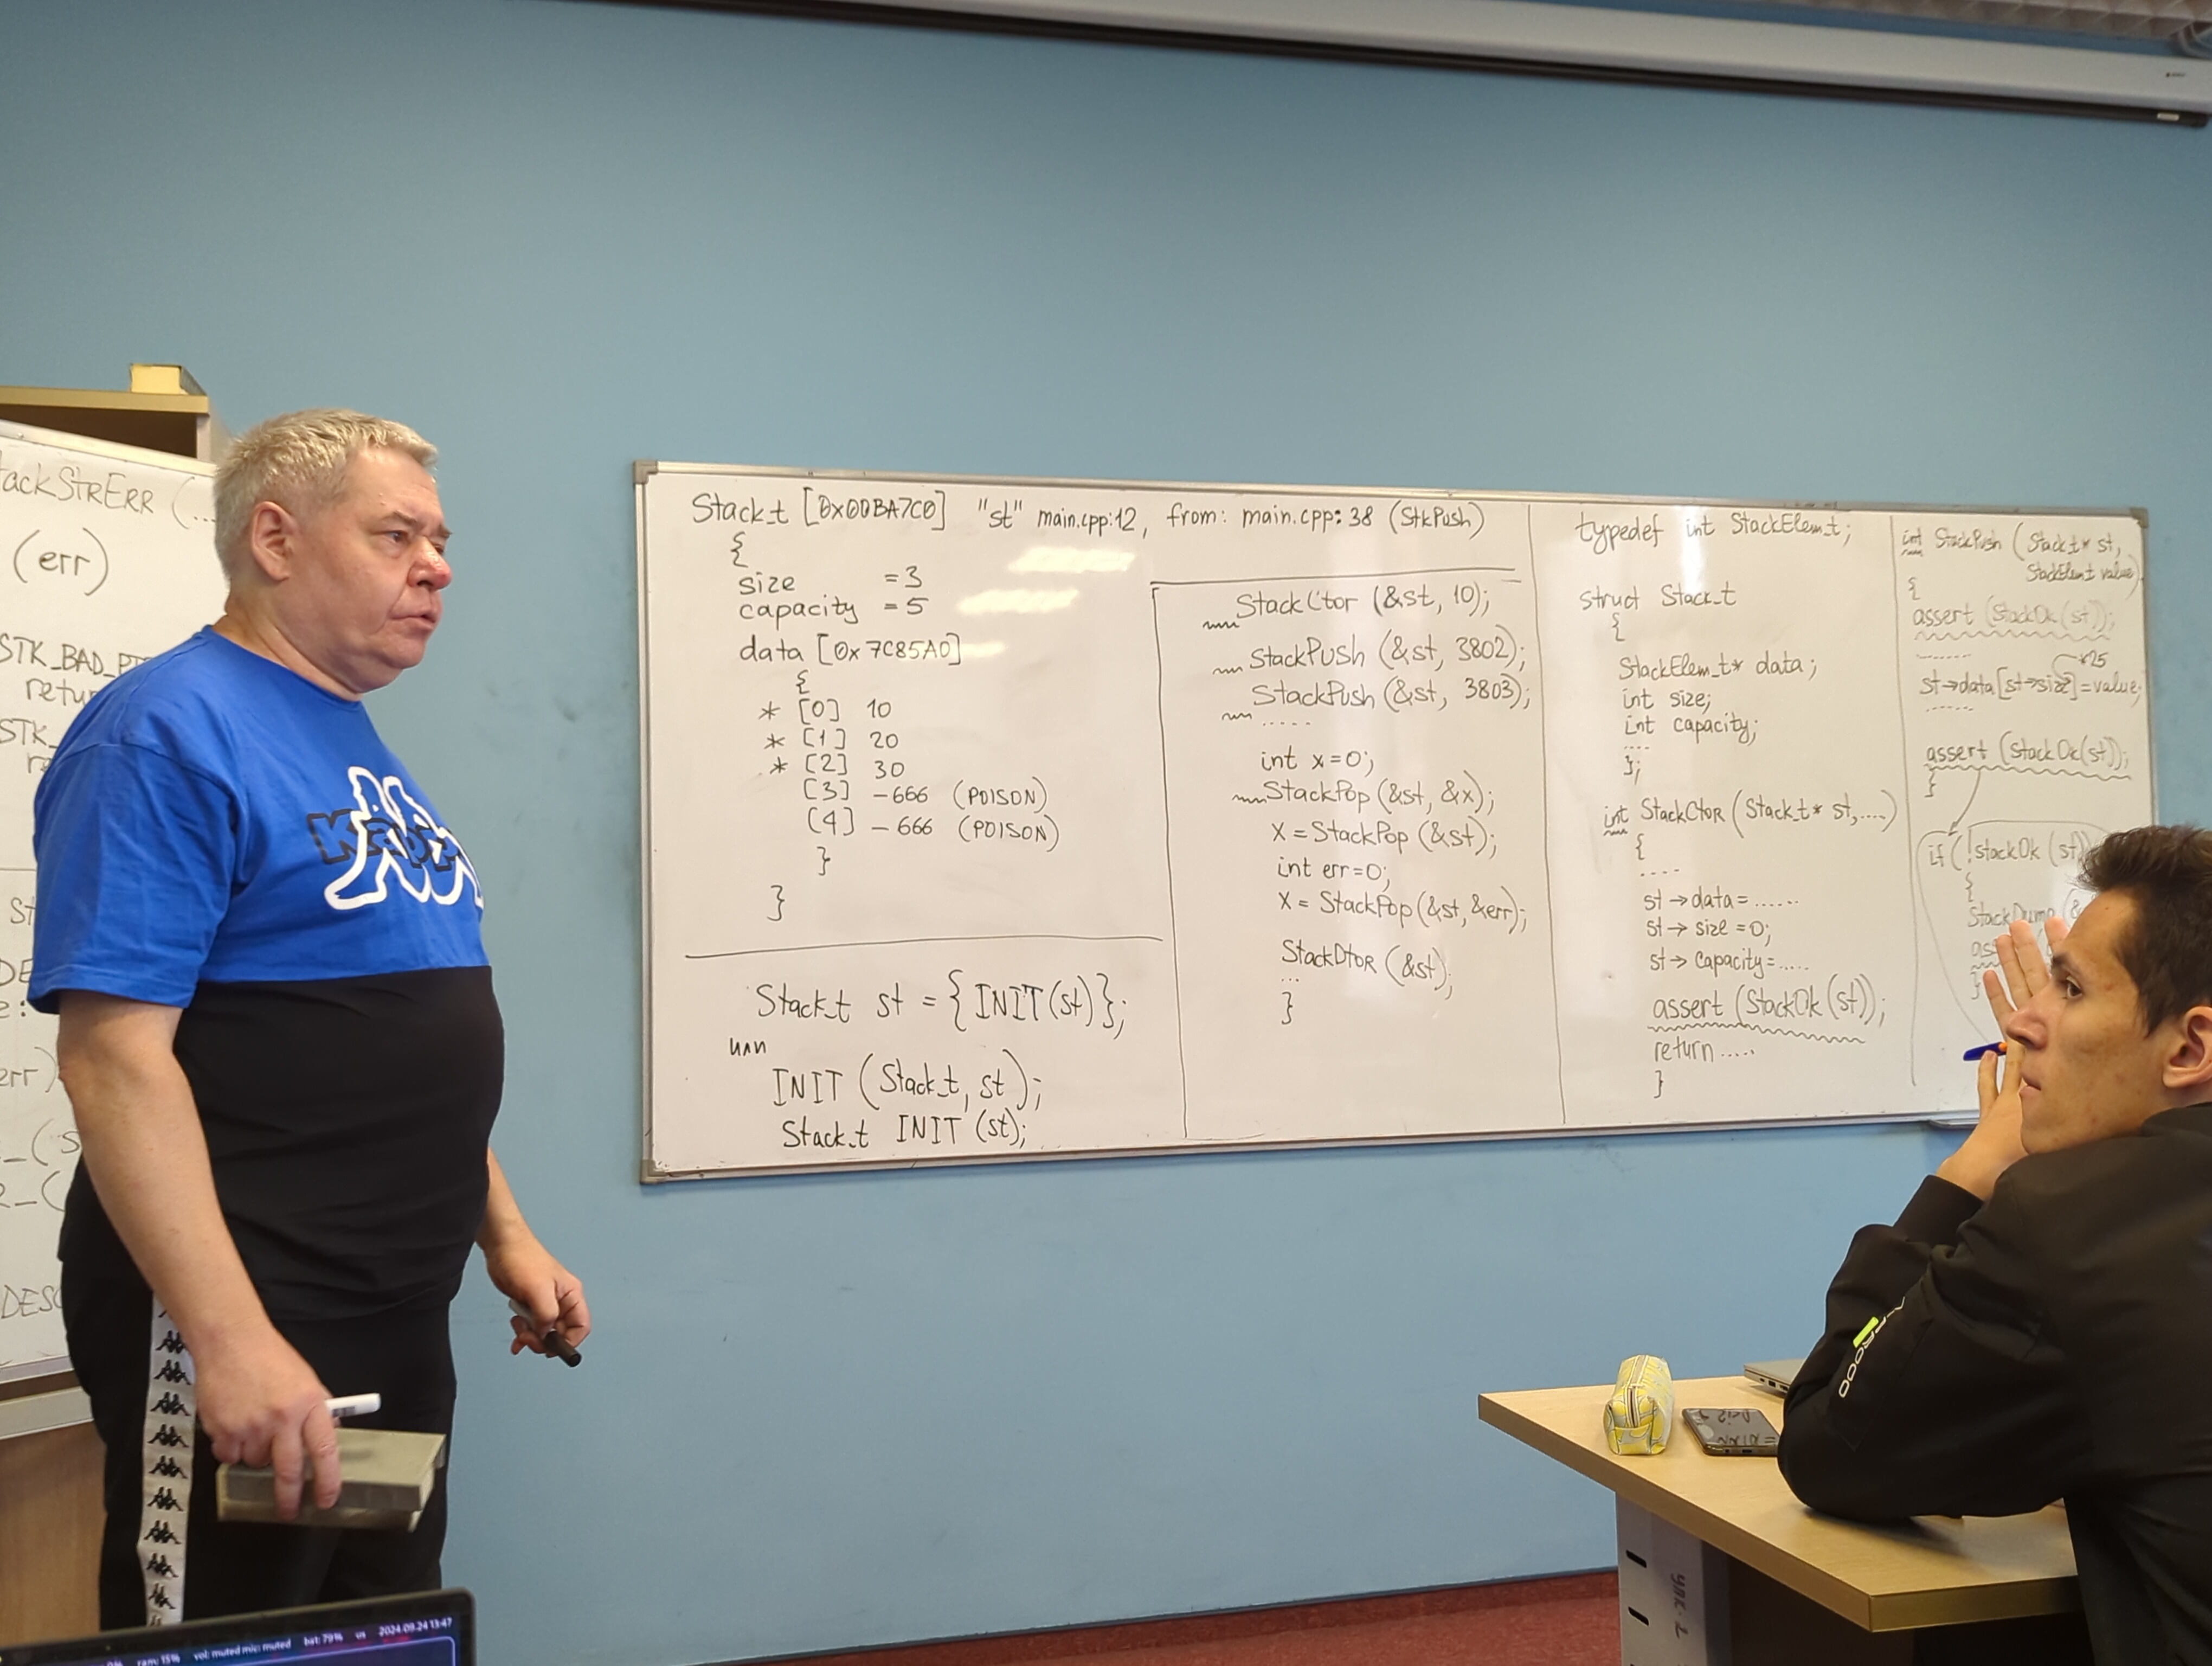 ackStrErr (...
(err)
STK_BAD_
retur
STK_
DESC
Kappa
Stack_t [0x00BA7C0] "st" main.cpp:12, from: main.cpp:38 (StkPush)
{
size =3
capacity =5
data [0x7C85A0]
{
* [0] 10
* [1] 20
* [2] 30
[3] -666 (POISON)
[4] -666 (POISON)
}
}
Stack_t st = {INIT(st)};
или
INIT (Stack_t, st);
Stack_t INIT (st);
StackCtor (&st, 10);
StackPush (&st, 3802);
StackPush (&st, 3803);
.....
int x=0;
StackPop (&st, &x);
X = StackPop (&st);
int err=0;
X = StackPop (&st, &err);
StackDtor (&st);
...
}
typedef int StackElem_t;
struct Stack_t
{
StackElem_t* data;
int size;
int capacity;
....
};
int StackCtor (Stack_t* st,....)
{
....
st→data=......
st→size=0;
st→capacity=.....
assert (StackOk (st));
return.....
}
int StackPush (Stack_t* st,
StackElem_t value)
{
assert (StackOk (st));
......
st→data[st→size]=value;
......
assert (StackOk(st));
}
if (!stackOk (st)
{
StackDump (&
as
}
2024.09.24 13:47
bat: 79%
vol: muted mic: muted
ram: 15%